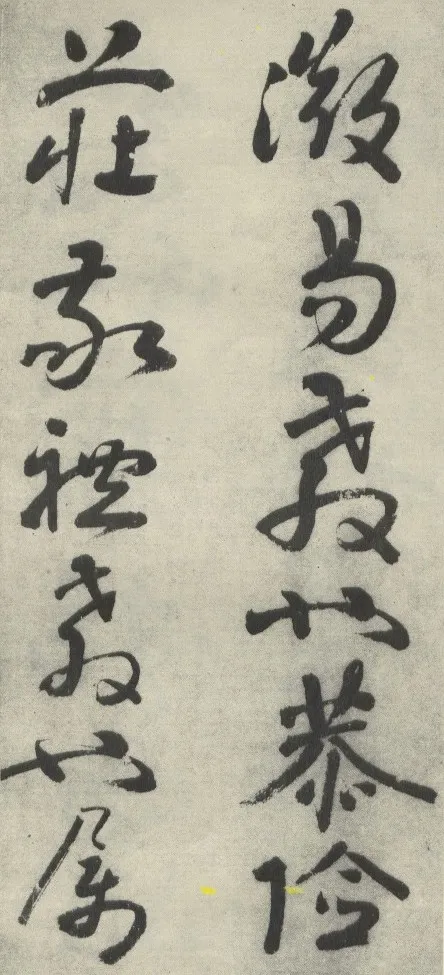 微易教也恭儉
莊敬禮教也屬